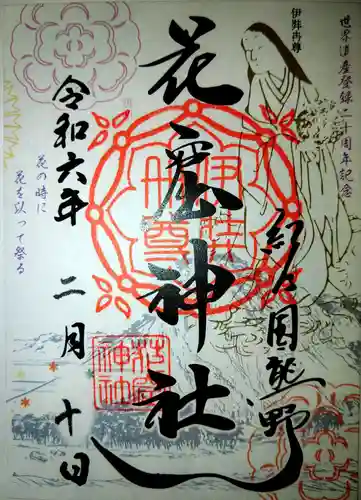 世界遺産登録二十周年記念
伊弉冉尊
紀伊国熊野
花窟神社
伊弉冉尊
花窟神社
令和六年 二月 十日
花の時に
花を以って祭る